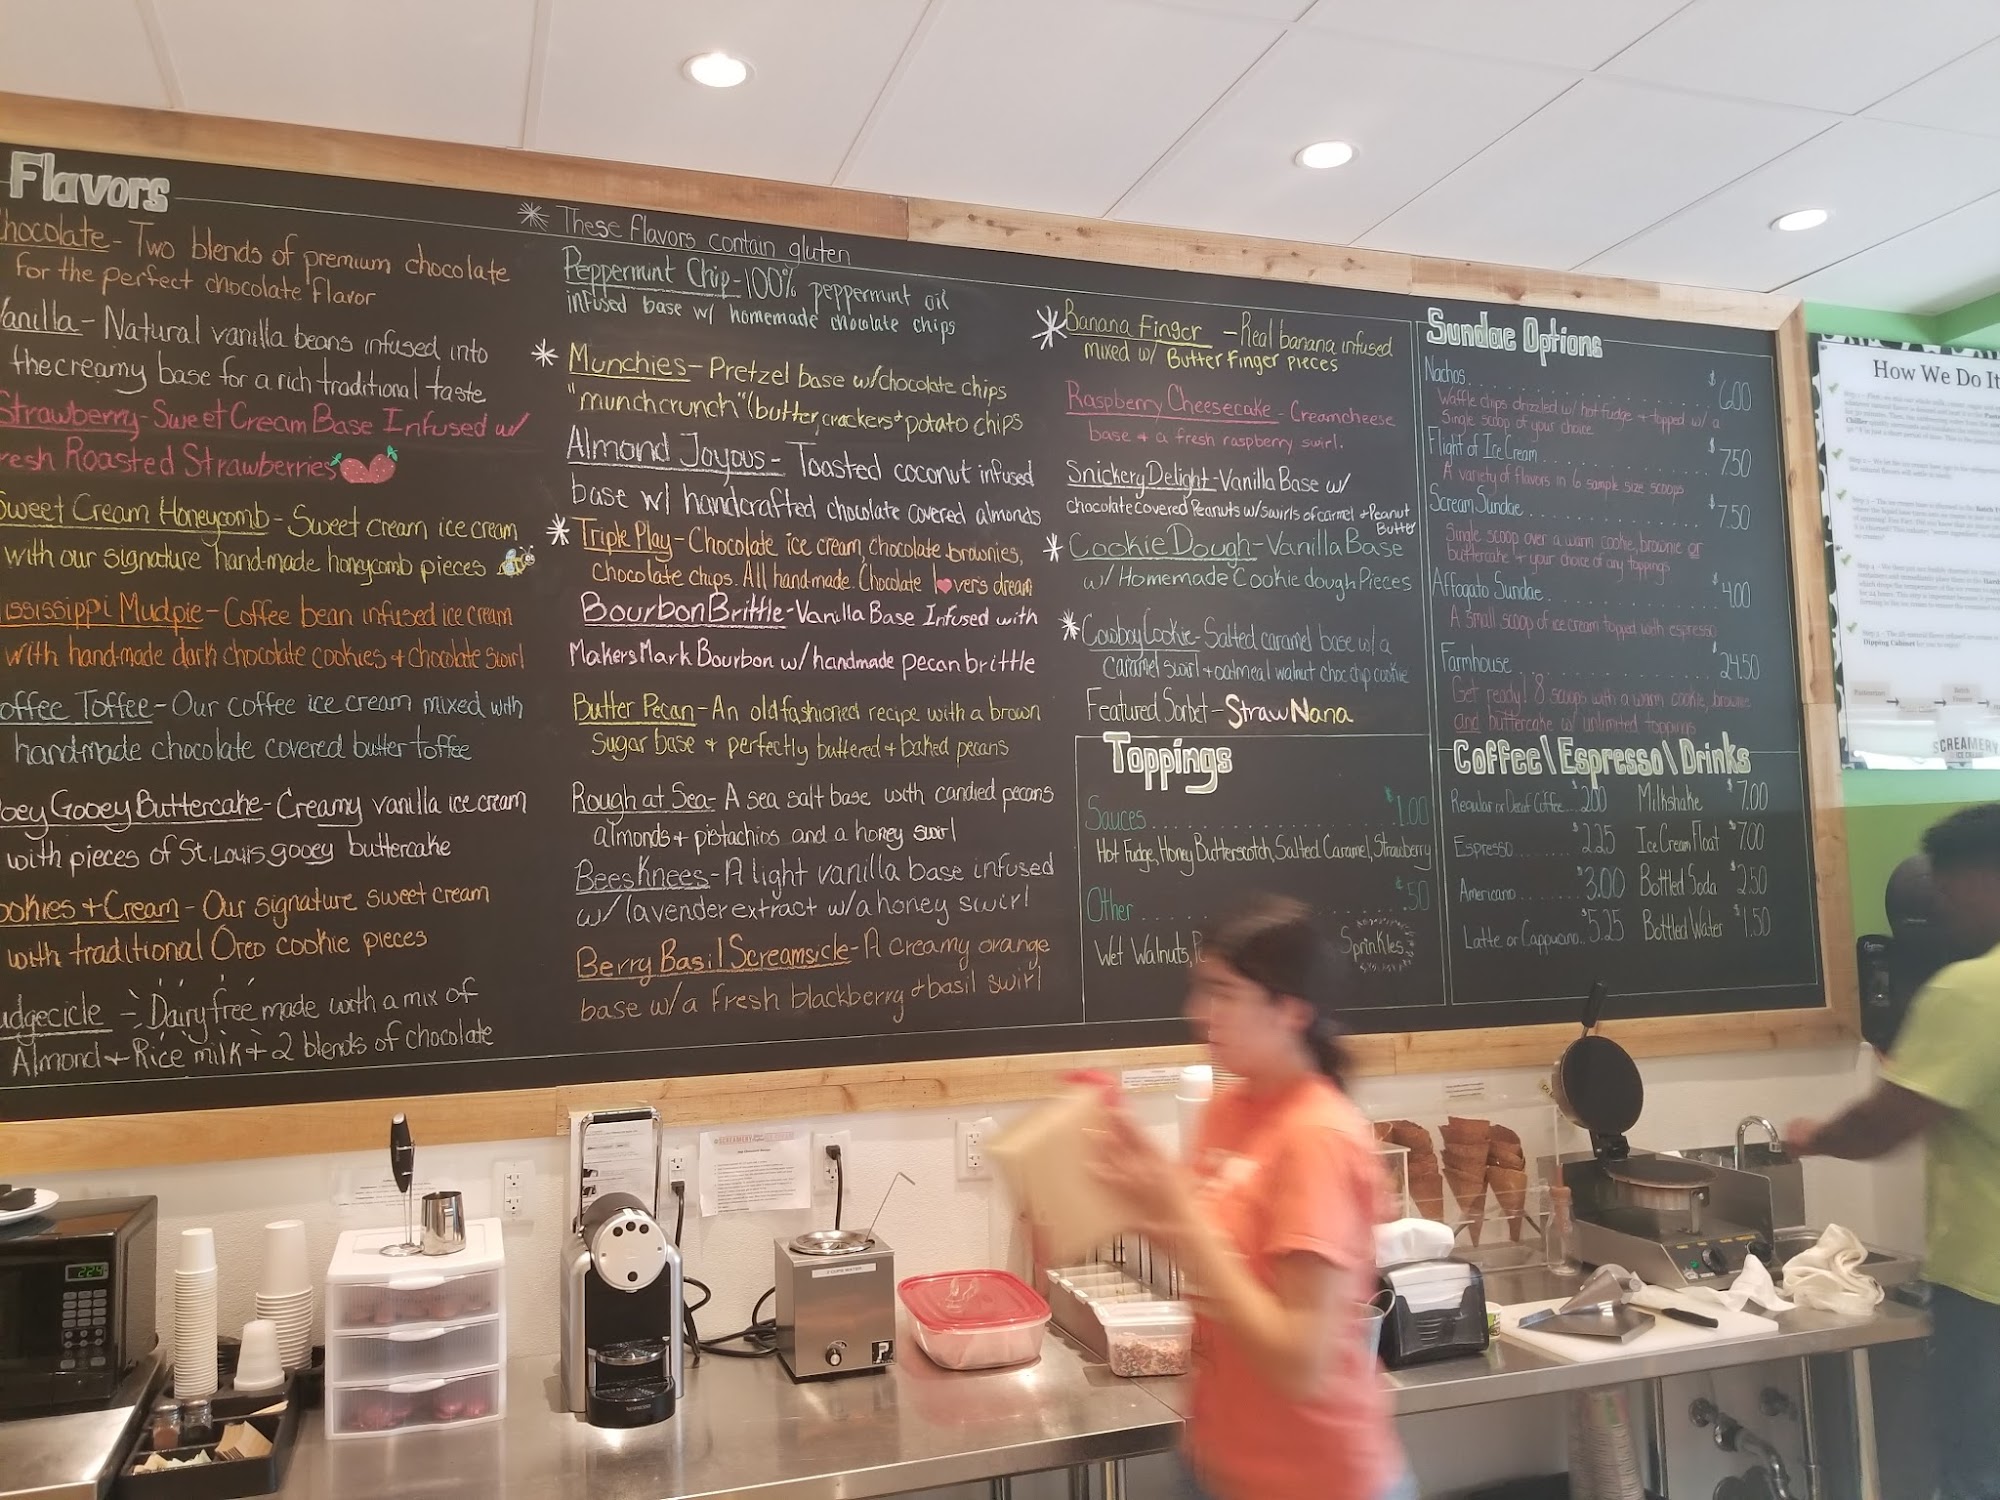 Flavors
Chocolate - Two blends of premium chocolate
for the perfect chocolate flavor
Vanilla - Natural vanilla beans infused into
the creamy base for a rich traditional taste
Strawberry - Sweet Cream Base Infused w/
resh Roasted Strawberries
Sweet Cream Honeycomb - Sweet cream ice cream
with our signature hand-made honeycomb pieces
ississippi Mudpie - Coffee bean infused ice cream
with hand-made dark chocolate cookies + chocolate swirl
offee Toffee - Our coffee ice cream mixed with
handmade chocolate covered butter toffee
ooey Gooey Buttercake - Creamy vanilla ice cream
with pieces of St. Louis gooey buttercake
ookies + Cream - Our signature sweet cream
with traditional Oreo cookie pieces
udgecicle - Dairy free made with a mix of
Almond + Rice milk + 2 blends of chocolate
* These Flavors contain gluten
Peppermint Chip - 100% peppermint oil
infused base w/ homemade chocolate chips
* Munchies - Pretzel base w/chocolate chips
"munchcrunch" (butter, crackers + potato chips
Almond Joyous - Toasted coconut infused
base w/ handcrafted chocolate covered almonds
* Triple Play - Chocolate ice cream, chocolate brownies,
chocolate chips. All hand-made. Chocolate lover's dream
Bourbon Brittle - Vanilla Base Infused with
Makers Mark Bourbon w/ handmade pecan brittle
Butter Pecan - An old fashioned recipe with a brown
sugar base + perfectly buttered + baked pecans
Rough at Sea - A sea salt base with candied pecans
almonds + pistachios and a honey swirl
Bees Knees - A light vanilla base infused
w/ lavender extract w/a honey swirl
Berry Basil Screamsicle - A creamy orange
base w/a fresh blackberry + basil swirl
* Banana Finger - Real banana infused
mixed w/ Butter Finger pieces
Raspberry Cheesecake - Creamcheese
base + a fresh raspberry swirl.
Snickery Delight - Vanilla Base w/
chocolate covered Peanuts w/swirls of carmel + Peanut
Butter
* Cookie Dough - Vanilla Base
w/ Homemade Cookie dough Pieces
* Cowboy Cookie - Salted caramel base w/a
caramel swirl + oatmeal walnut choc chip cookie
Featured Sorbet - StrawNana
Toppings
Sauces $1.00
Hot Fudge, Honey Butterscotch, Salted Caramel, Strawberry
Other $.50
Wet Walnuts, Sprinkles
Sundae Options
Nachos $6.00
Waffle chips drizzled w/ hot fudge + topped w/ a
single scoop of your choice
Flight of Ice Cream $7.50
A variety of flavors in 6 sample size scoops
Scream Sundae $7.50
Single scoop over a warm cookie, brownie or
buttercake + your choice of any toppings
Affogato Sundae $4.00
A small scoop of ice cream topped with espresso
Farmhouse $24.50
Get ready! 8 scoops with a warm cookie, brownie
and buttercake w/ unlimited toppings
Coffee\Espresso\Drinks
Regular or Decaf Coffee $2.00 Milkshake $7.00
Espresso $2.25 Ice Cream Float $7.00
Americano $3.00 Bottled Soda $2.50
Latte or Cappucino $5.25 Bottled Water $1.50
How We Do It
SCREAMERY
2:24
2 CUPS WATER
SCREAMERY